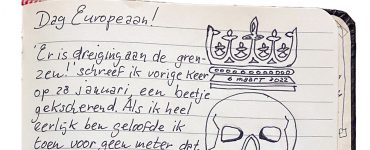 Dag Europeaan!
'Er is dreiging aan de gren-
zen!' schreef ik vorige keer
op 28 januari, een beetje
gekscherend. Als ik heel
eerlijk ben geloofde ik
toen voor geen meter dat
6 maart 2022